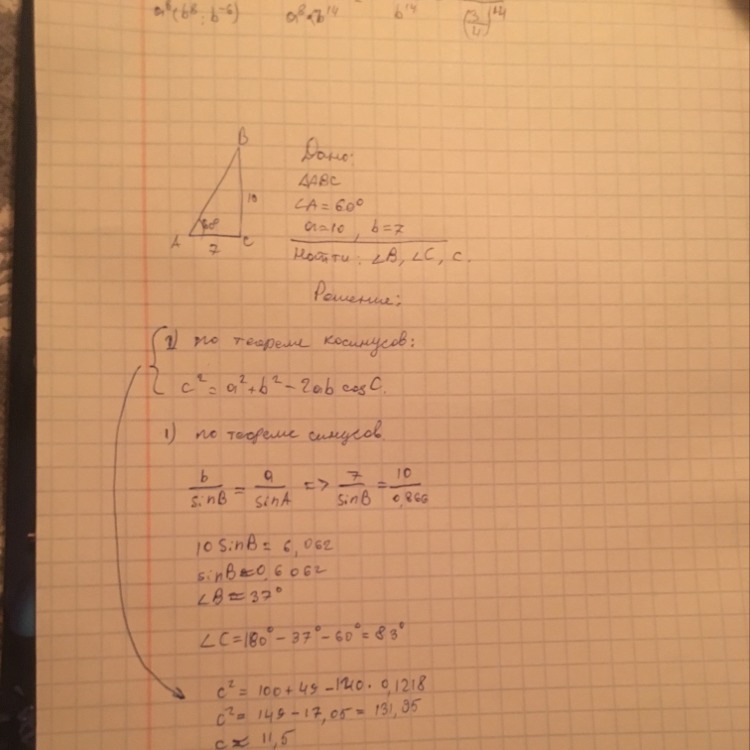 a⁸(b⁸:b⁻⁶) a⁸·b¹⁴ b¹⁴ (3/4)¹⁴
B
Дано:
ΔABC
∠A=60°
10
60°
a=10, b=7
A
C
7
Найти: ∠B, ∠C, c.
Решение:
2) по теореме косинусов:
c²=a²+b²-2ab cosC.
1) по теореме синусов
b/sinB = a/sinA => 7/sinB = 10/0,866
10 sinB = 6,062
sinB≈0,6062
∠B≈37°
∠C=180°-37°-60°=83°
c²=100+49-140·0,1218
c²=149-17,05=131,95
c≈11,5